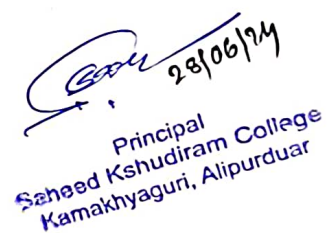 28/06/24
Principal
Saheed Kshudiram College
Kamakhyaguri, Alipurduar